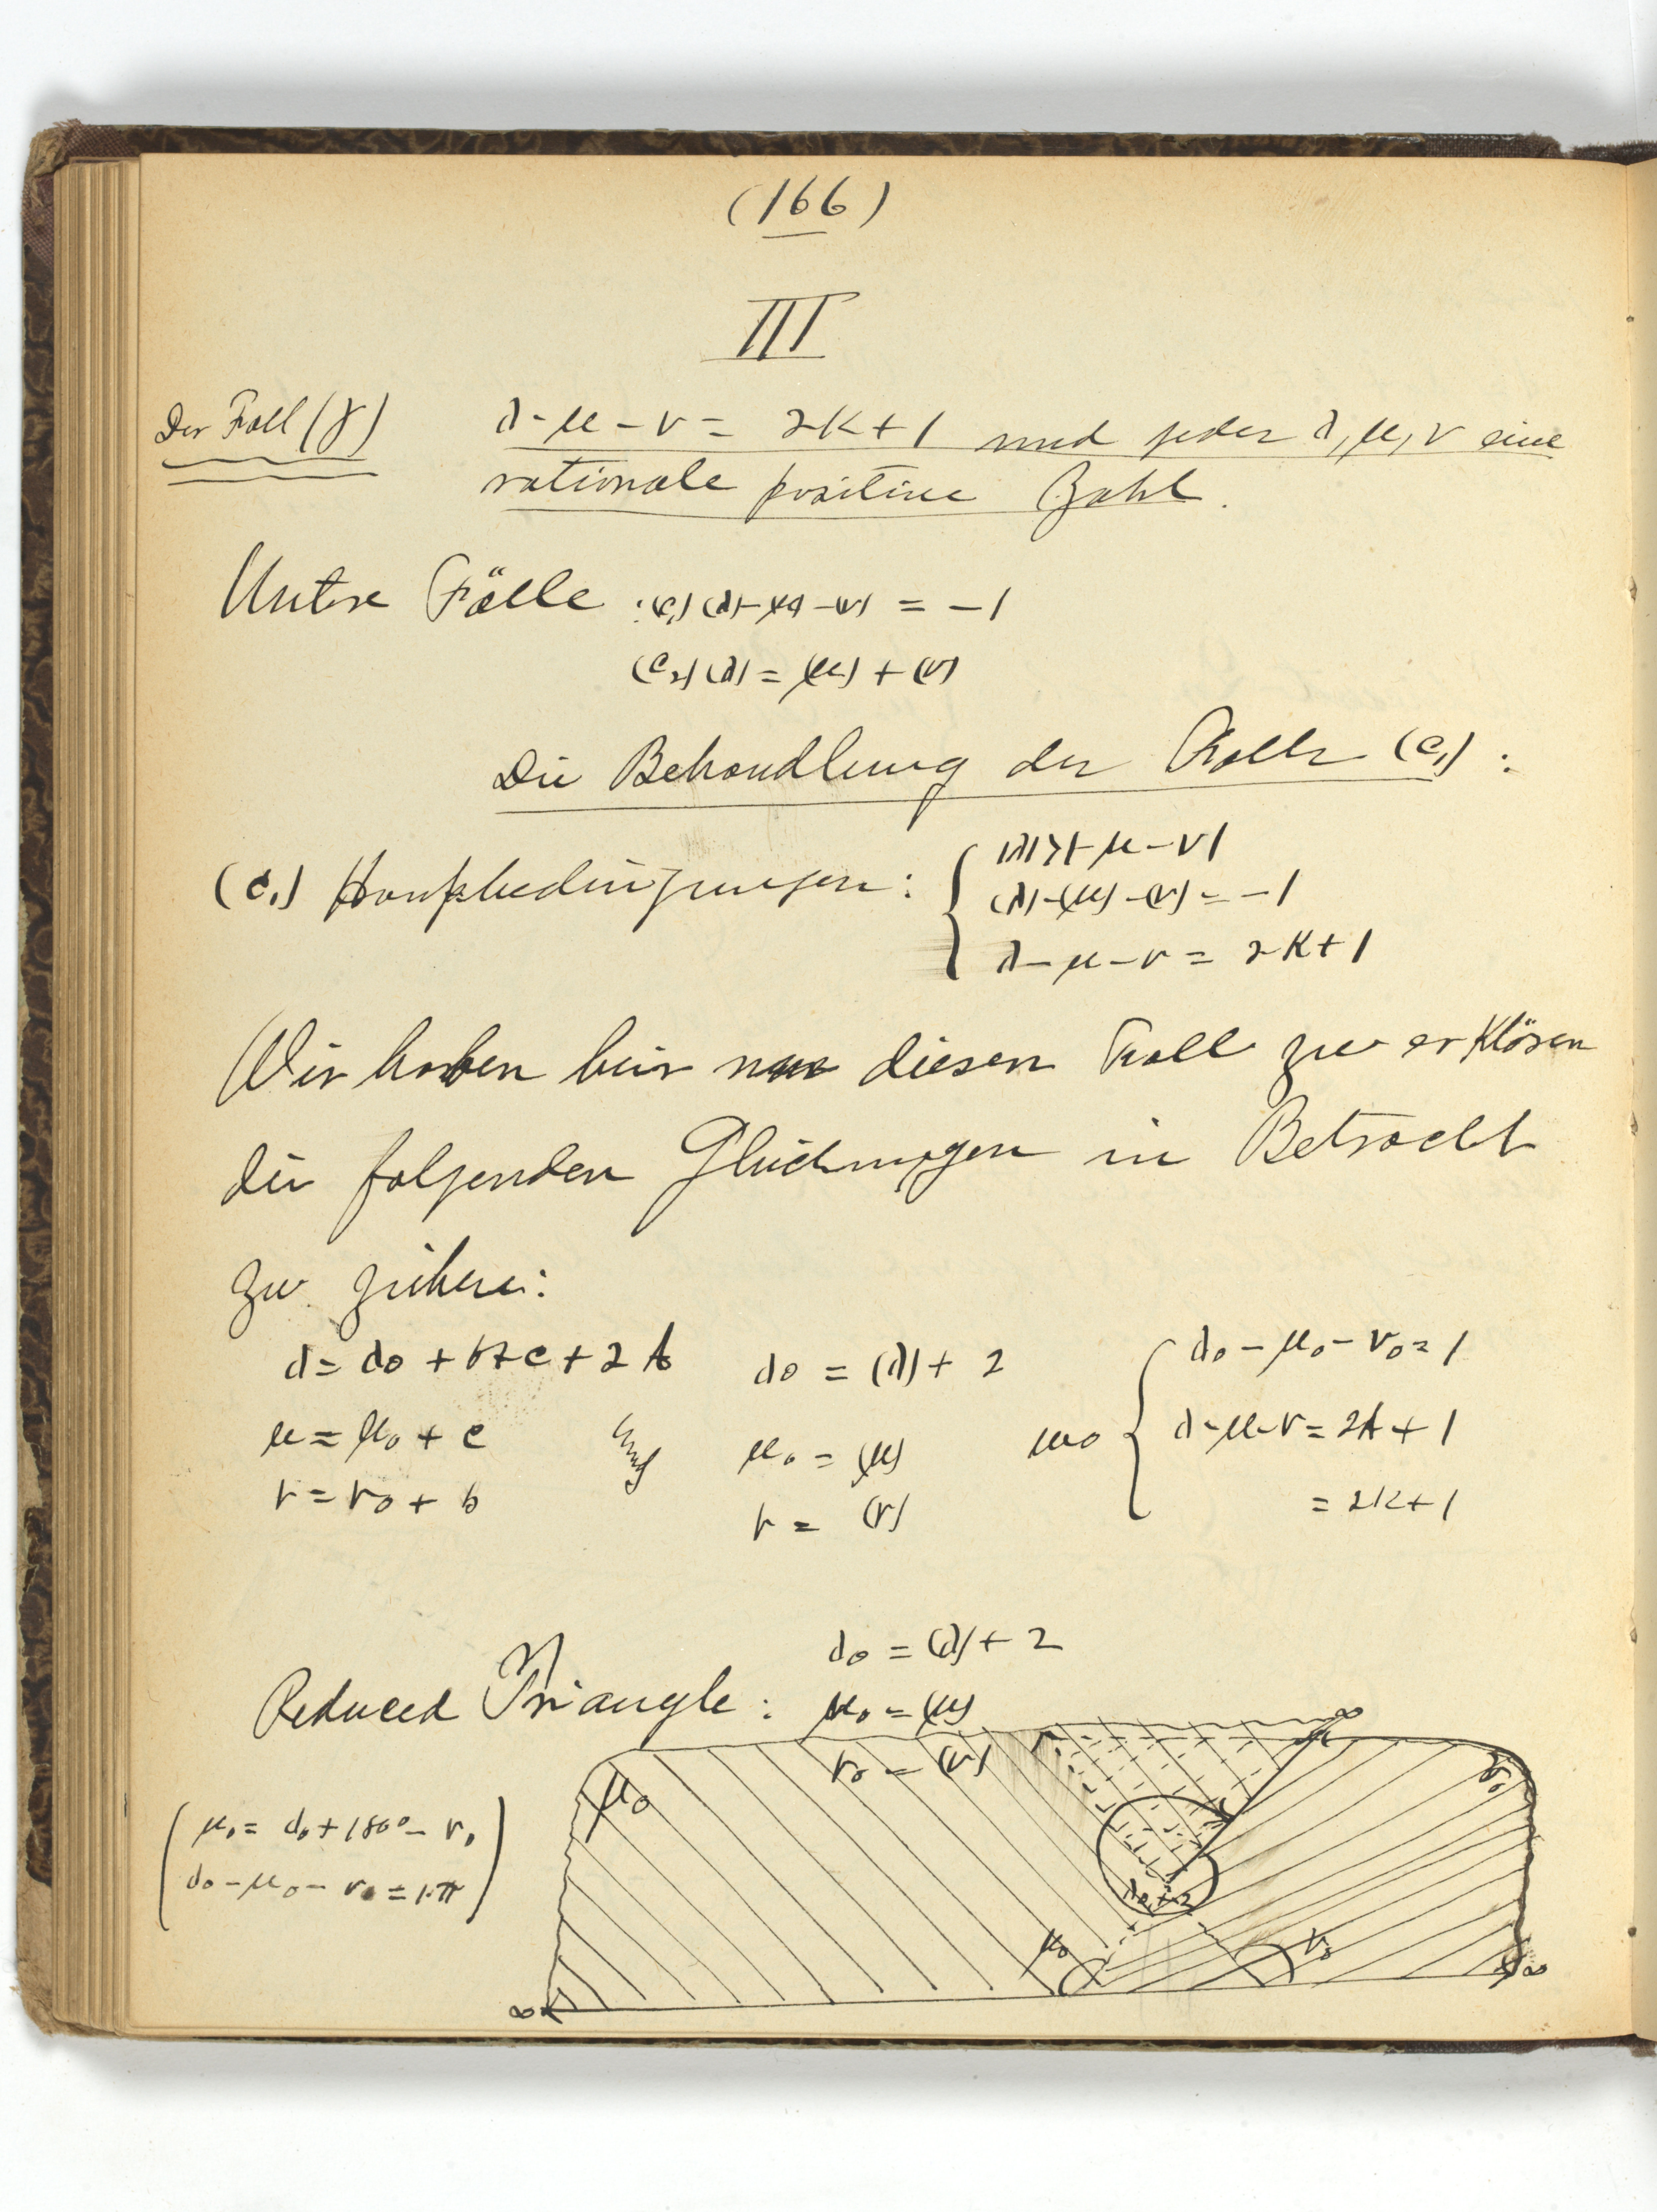 (166)
III
Der Fall (γ) λ-μ-ν = 2K+1 und jeder λ, μ, ν eine
rationale positive Zahl.
Untere Fälle : (c₁) (λ)-(μ)-(ν) = -1
(c₂) (λ) = (μ) + (ν)
Die Behandlung der Falls (c₁) :
(c₁) Hauptbedingungen : λ-μ-ν
(λ)-(μ)-(ν) = -1
λ-μ-ν = 2K+1
Wir haben hier diesen Fall zu erklären
die folgenden Gleichungen in Betracht
zu ziehen:
λ = λ₀ + b + c + 2A λ₀ = (λ) + 2 λ₀ - μ₀ - ν₀ = 1
μ = μ₀ + c μ₀ = (μ) wo λ-μ-ν = 2A + 1
ν = ν₀ + b ν = (ν) = 2K+1
λ₀ = (λ) + 2
Reduced Triangle : μ₀ = (μ)
ν₀ = (ν)
∞
μ₀ ν₀
μ₀ = λ₀ + 180° - ν₀
λ₀ - μ₀ - ν₀ = 1·π
λ₀+2
μ₀ ν₀
∞ ∞